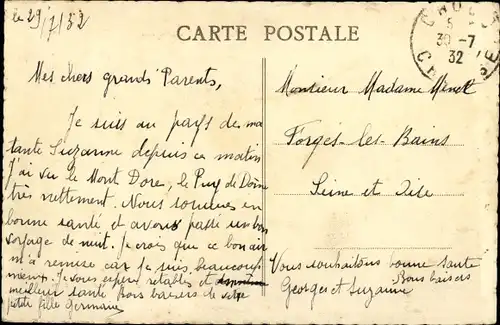 le 29/7/32
CARTE POSTALE
CROCQ
30-7
32
CREUSE
Mes chers grands Parents,
Je suis au pays de ma
tante Suzanne depuis ce matin
J'ai vu le Mont Dore, le Puy de Dôme
très nettement. Nous sommes en
bonne santé et avons passé un bon
voyage de nuit. Je crois que ce bon air
m'a remise car je suis beaucoup
mieux. Je vous espère rétablis et
meilleure santé Bons baisers de votre
petite fille Germaine
Monsieur Madame
Forges-les-Bains
Seine et Oise
Vous souhaitons bonne santé
Bons baisers
Georges et Suzanne